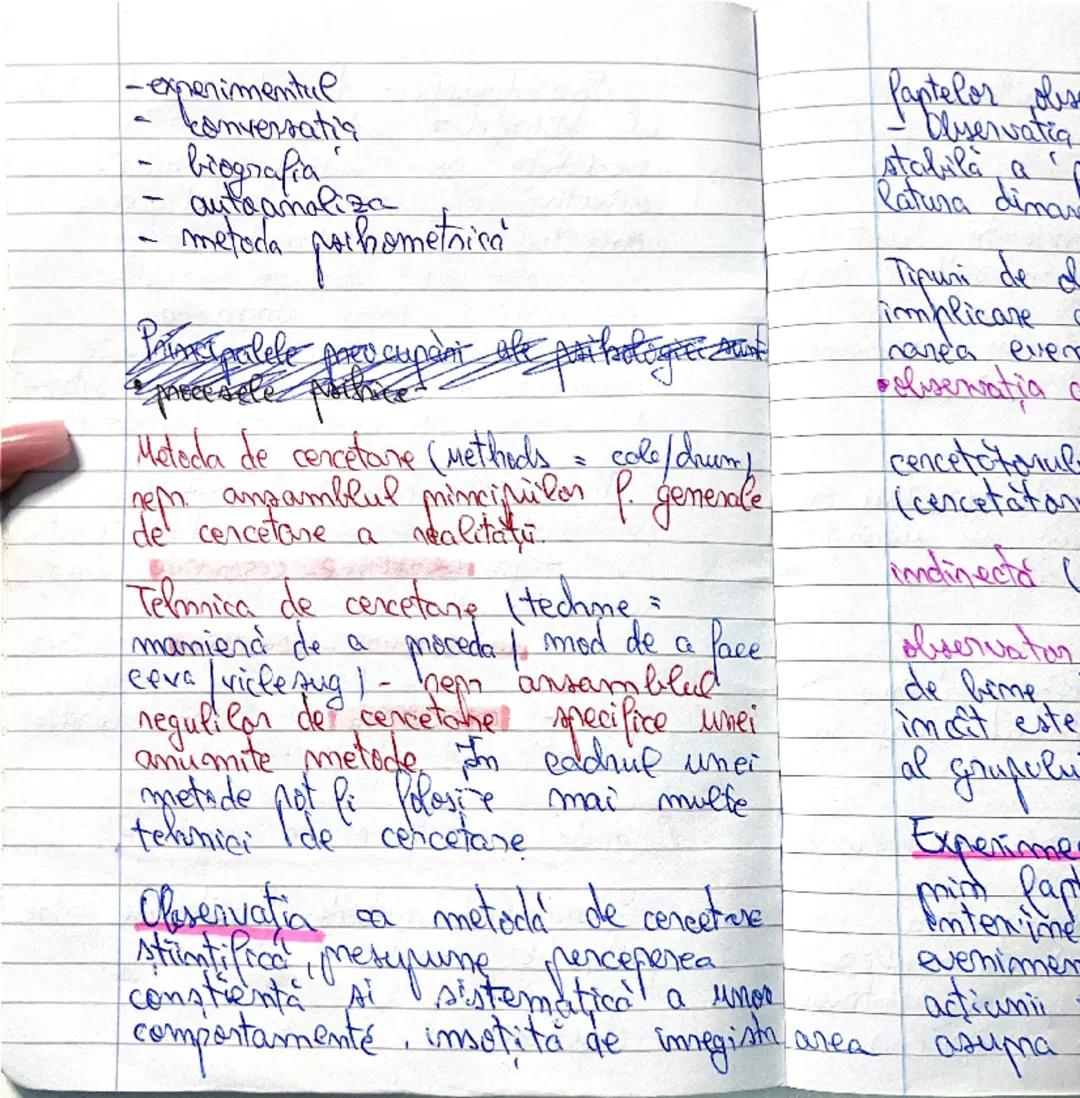 -experimentul
- conversația
- biografia
- autoanaliza
- metoda psihometrică
Principalele preocupări ale psihologiei sunt
• procesele psihice
Metoda de cercetare (Methods = cale/drum)
repr. ansamblul principiilor f. generale
de cercetare a realității.
Tehnica de cercetare (techne =
manieră de a proceda / mod de a face
ceva / viclesug) - repr ansamblul
regulilor de cercetare specifice unei
anumite metode. În cadrul unei
metode pot fi folosite mai multe
tehnici de cercetare
Observația ca metodă de cercetare
științifică, presupune perceperea
conștientă si sistematică a unor
comportamente, însoțită de inregistrarea
faptelor obse
- Observația
stabilă a
latura
Tipuri de
implicare
narea even
•observația
cercetătorul
(cercetător
indirectă (
observator
de bine
încât este
al grupului
Experime
prin fapt
intervine
evenimen
acțiunii
asupra